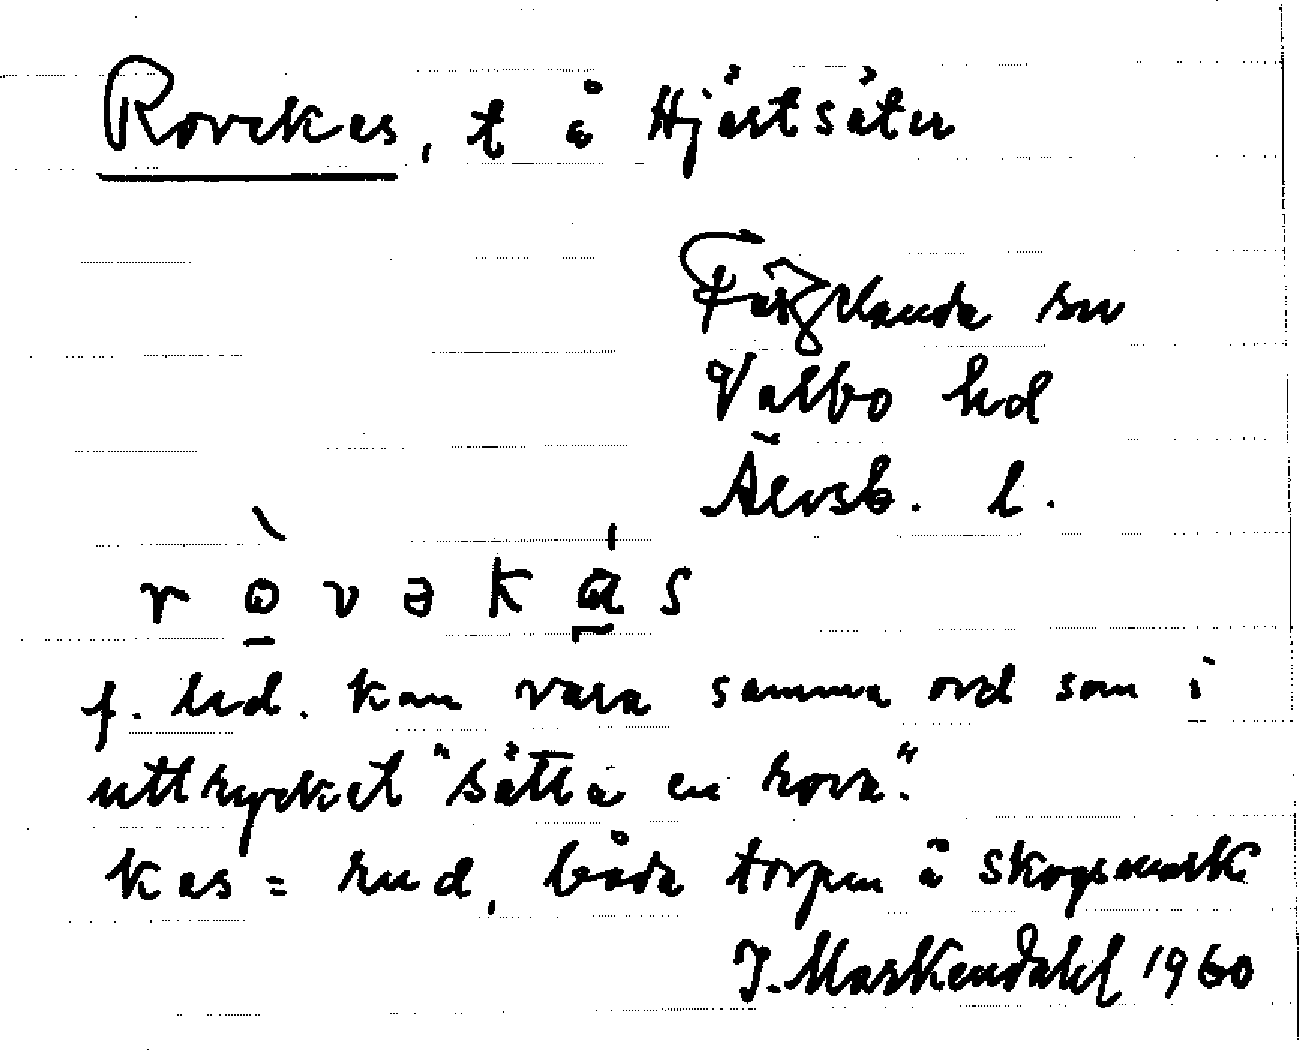 Rovekas, t å Hjärtsäter
Färgelanda sn
Valbo hd
Älvsb. l.
ròvəkás
f. led. kan vara samma ord som i
uttrycket "sätta en rova".
kas = rud, båda torpen å skogsmark
J. Markendahl 1960